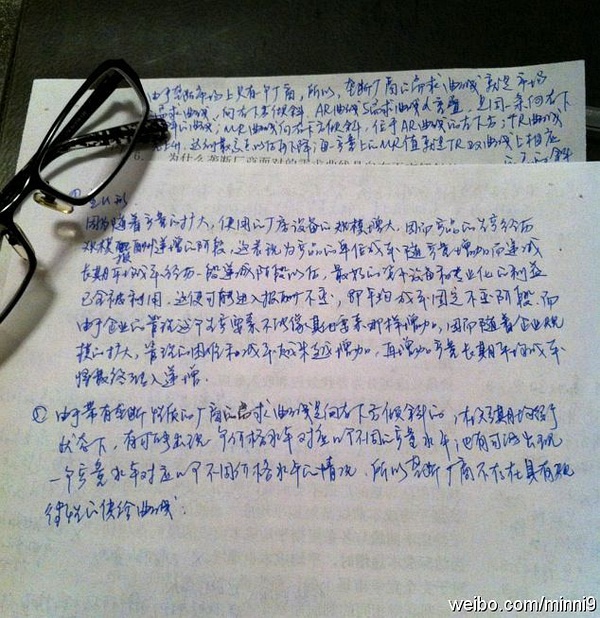 由于垄断市场上只有一个厂商，所以，垄断厂商的需求曲线就是市场
需求曲线，向右下方倾斜，AR曲线与需求曲线重叠，是同一条向右下
的曲线；MR曲线向右下方倾斜，位于AR曲线的左下方；TR曲线
达到最高点以后下降；每一产量上的MR值就是TR曲线上相应
为什么垄断厂商
因为随着产量的扩大，使用的厂房设备的规模增大，因而产品的生产经历
规模报酬递增的阶段，这表现为产品的单位成本随产量增加而递减
长期平均成本经历一段递减阶段以后，最好的资本设备和专业化的利益
已全被利用，这便可能进入报酬不变，即平均成本固定不变阶段，而
由于企业的管理这个生产要素不能像其他要素那样增加，因而随着企业规
模的扩大，管理的困难和成本越来越增加，再增加产量长期平均成本
将最终转入递增．
② 由于带有垄断性质的厂商的需求曲线是向右下方倾斜的，
状态下，有可能出现一个价格水平对应几个不同的产量水平，也有可能出现
一个产量水平对应几个不同价格水平的情况．所以垄断厂商不存在具有规
律性的供给曲线；
weibo.com/minni9